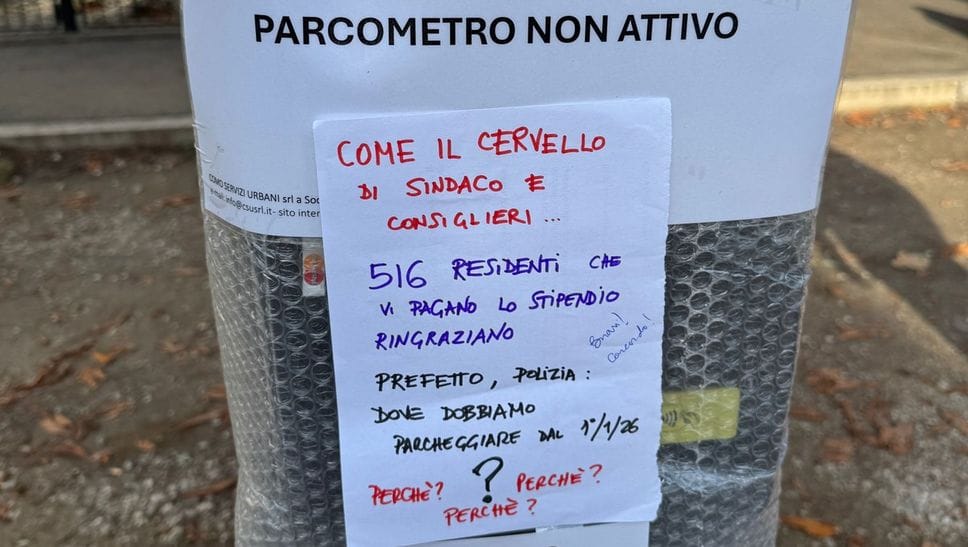 PARCOMETRO NON ATTIVO
COMO SERVIZI URBANI srl a Soc
e-mail: info@csusrl.it- sito inter
COME IL CERVELLO
DI SINDACO E
CONSIGLIERI...
516 RESIDENTI CHE
VI PAGANO LO STIPENDIO
RINGRAZIANO
Bravi!
Concordo!
PREFETTO, POLIZIA:
DOVE DOBBIAMO
PARCHEGGIARE DAL 1°/1/26
?
PERCHÈ? PERCHÈ?
PERCHÈ?